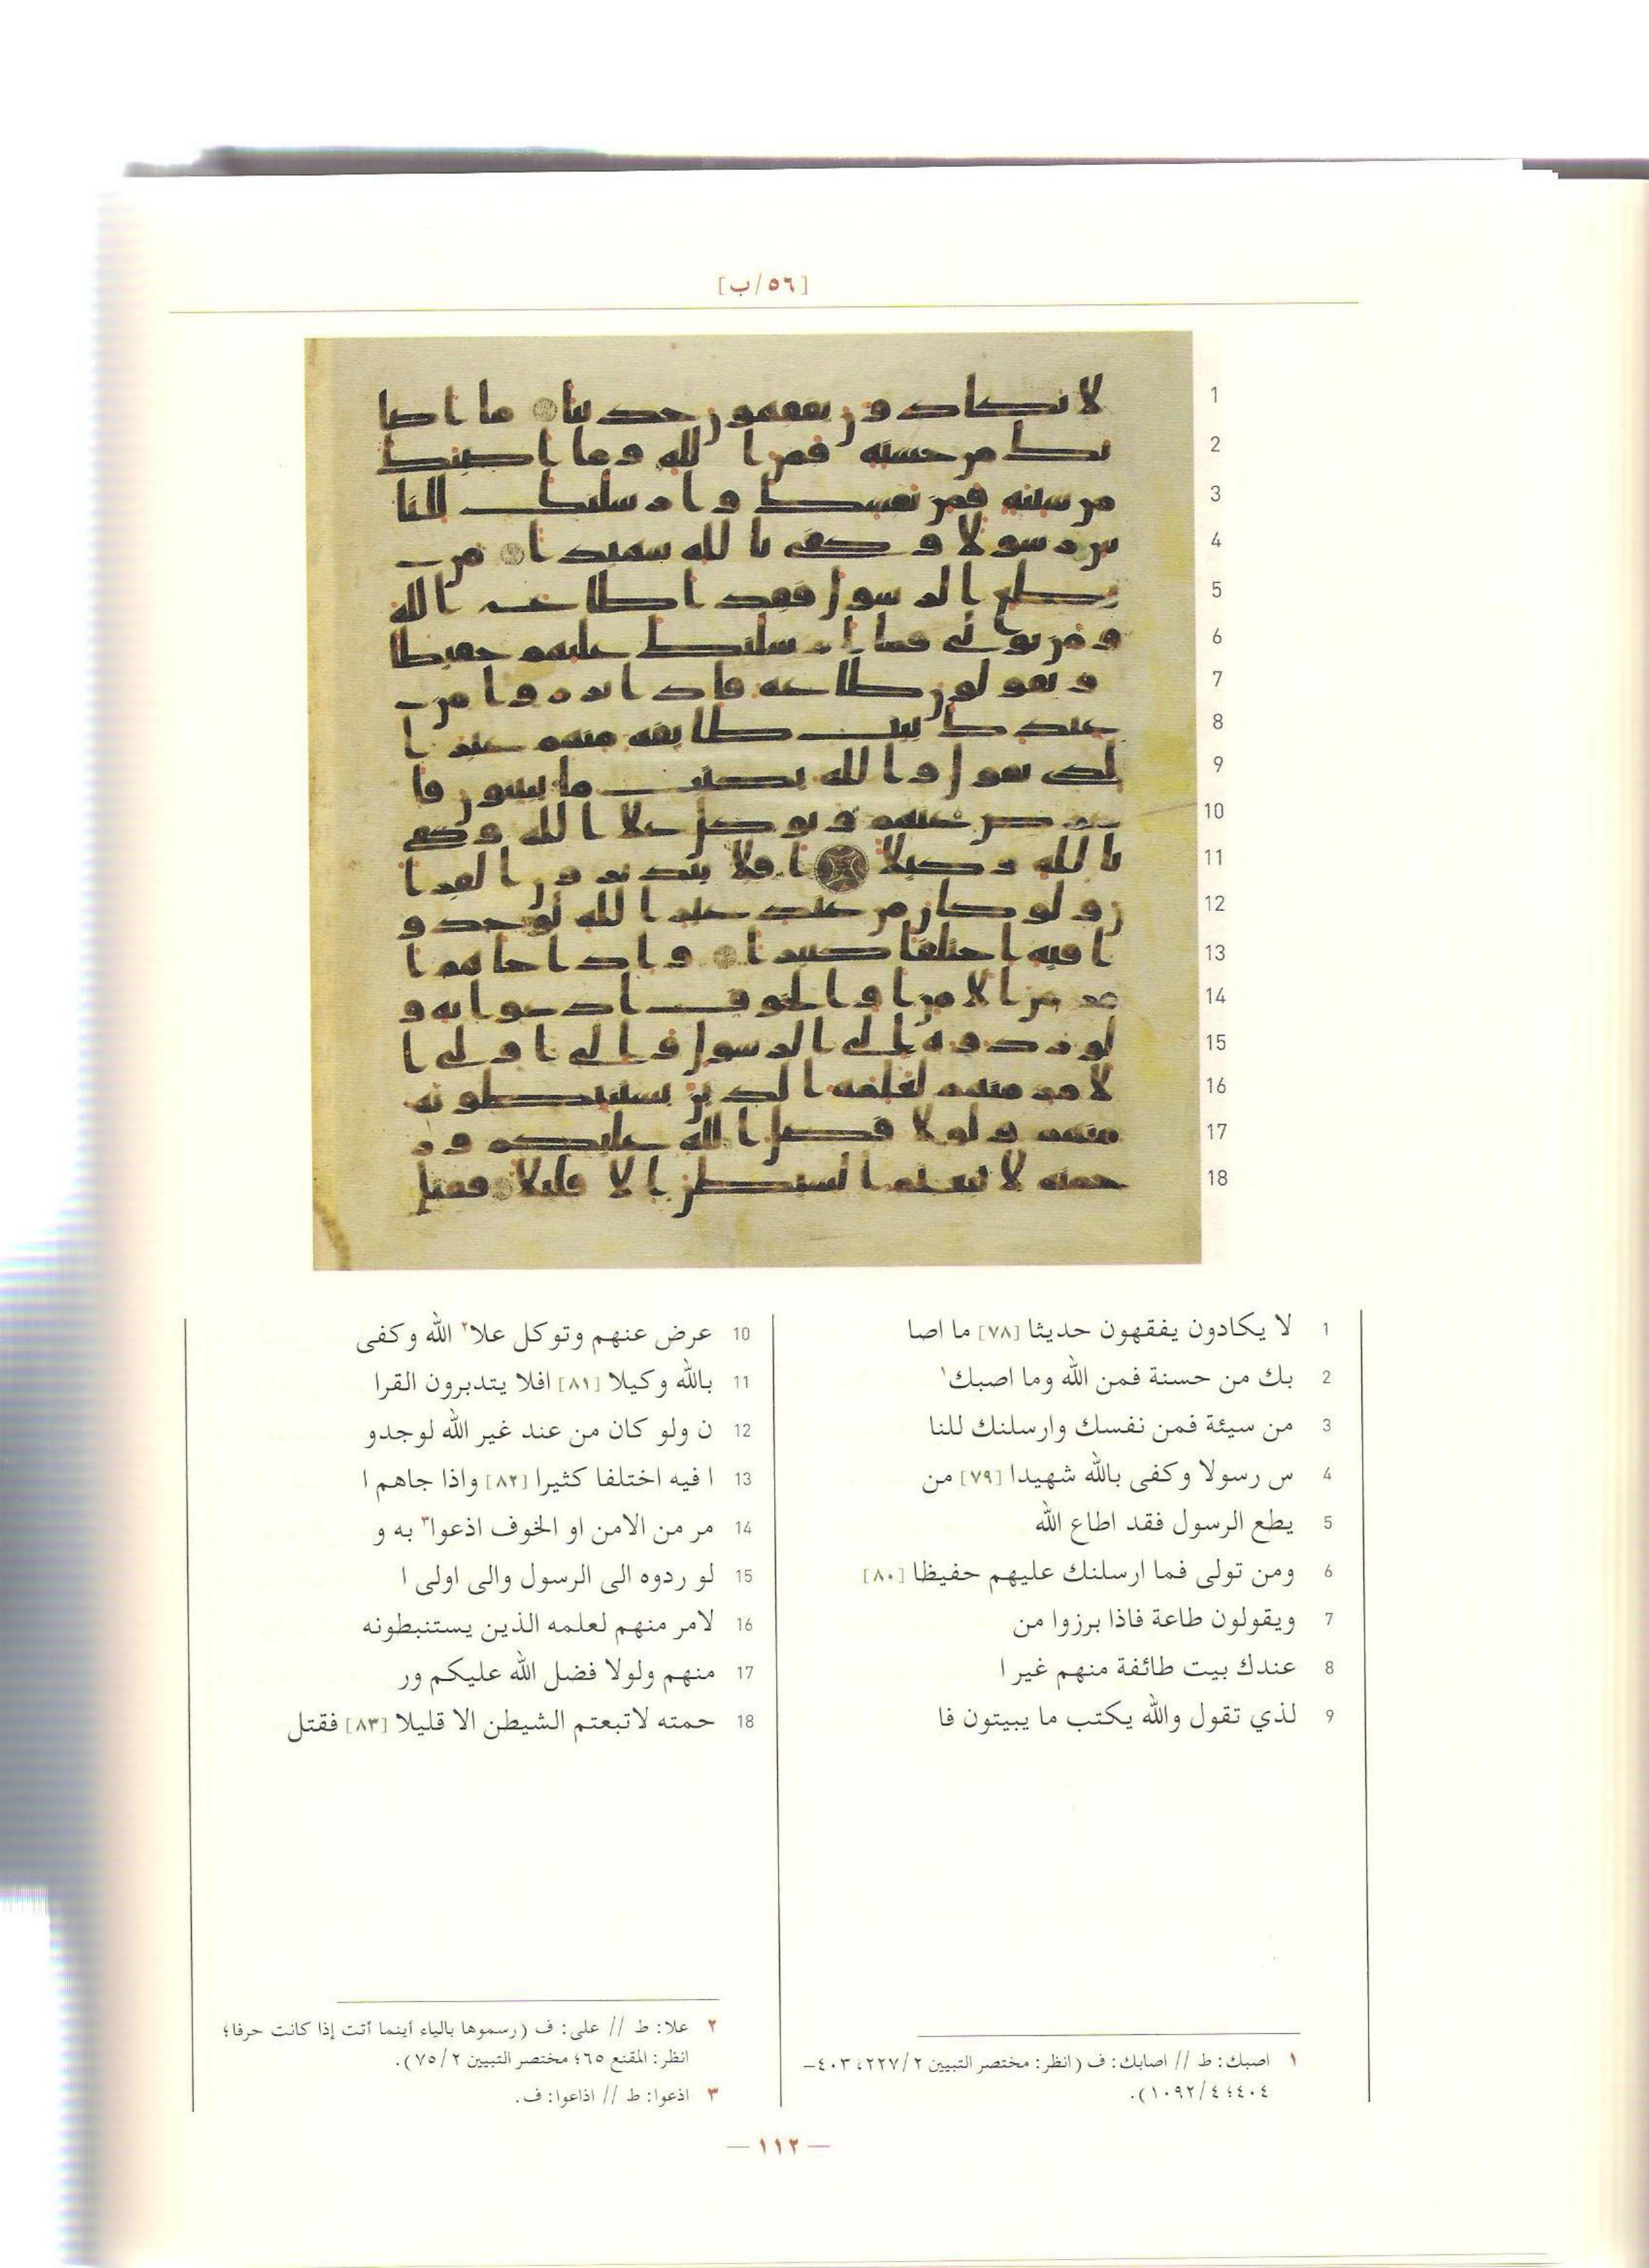 [٥٦/ب]
1 لا يكادون يفقهون حديثا [٧٨] ما اصا
2 بك من حسنة فمن الله وما اصبك١
3 من سيئة فمن نفسك وارسلنك للنا
4 س رسولا وكفى بالله شهيدا [٧٩] من
5 يطع الرسول فقد اطاع الله
6 ومن تولى فما ارسلنك عليهم حفيظا [٨٠]
7 ويقولون طاعة فاذا برزوا من
8 عندك بيت طائفة منهم غير ا
9 لذي تقول والله يكتب ما يبيتون فا
10 عرض عنهم وتوكل علا٢ الله وكفى
11 بالله وكيلا [٨١] افلا يتدبرون القرا
12 ن ولو كان من عند غير الله لوجدو
13 ا فيه اختلفا كثيرا [٨٢] واذا جاهم ا
14 مر من الامن او الخوف اذعوا٣ به و
15 لو ردوه الى الرسول والى اولى ا
16 لامر منهم لعلمه الذين يستنبطونه
17 منهم ولولا فضل الله عليكم ور
18 حمته لاتبعتم الشيطن الا قليلا [٨٣] فقتل
١ اصبك: ط // اصابك: ف (انظر: مختصر التبيين ٢/٢٢٧، ٤٠٣-
٤٠٤؛ ٤/١٠٩٢).
٢ علا: ط // على: ف (رسموها بالياء أينما أتت إذا كانت حرفا؛
انظر: المقنع ٦٥؛ مختصر التبيين ٢/٧٥).
٣ اذعوا: ط // اذاعوا: ف.
— ١١٢ —